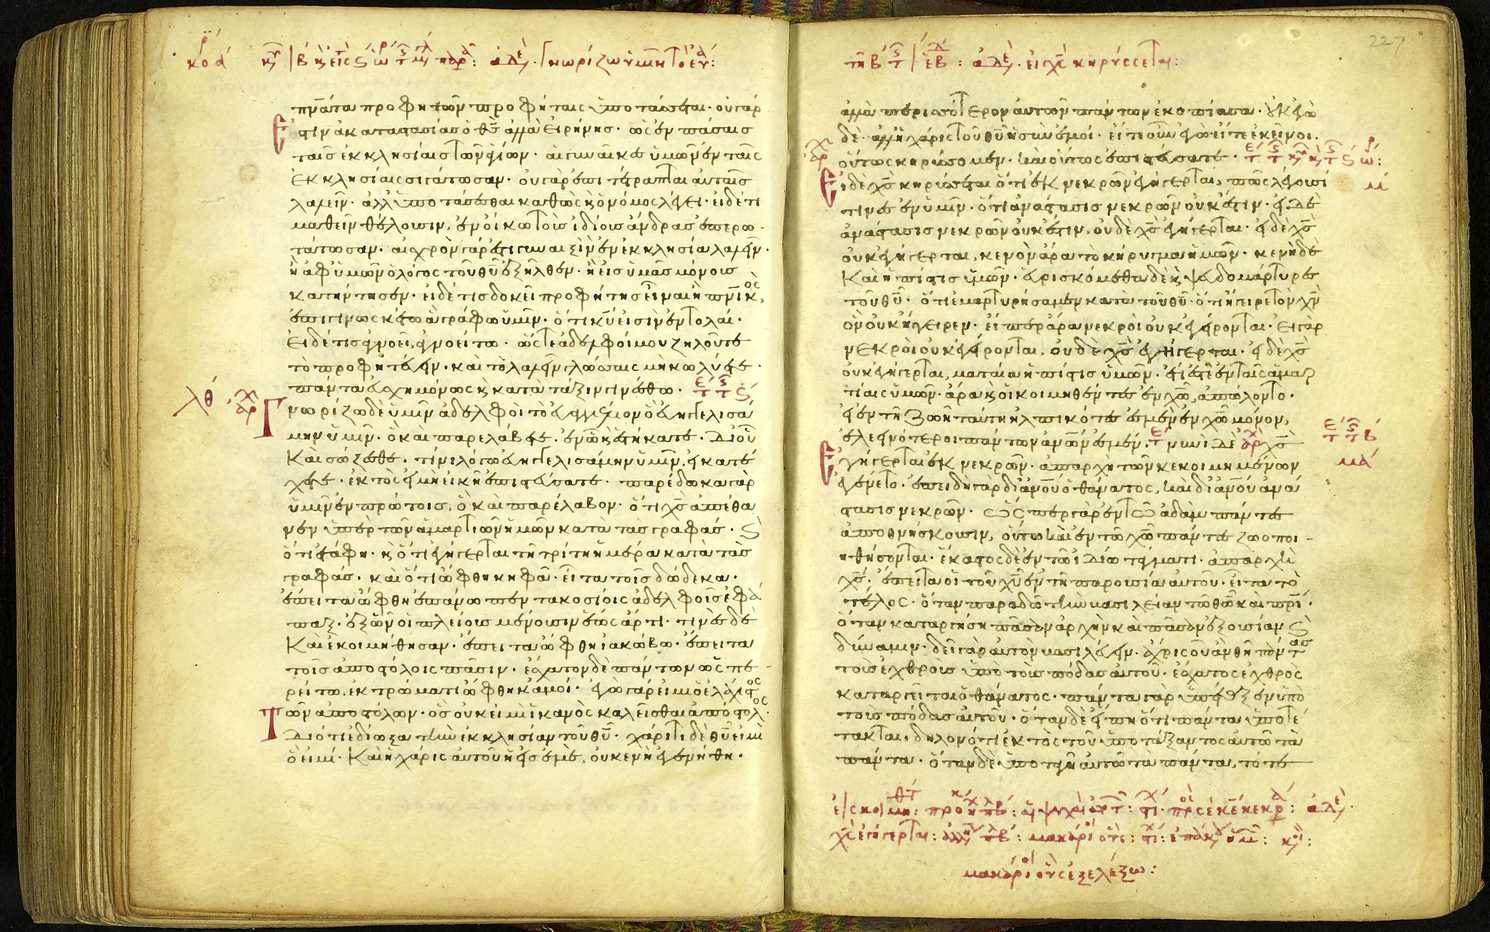 πνάτα προφητῶν προφήταις ὑποτάσσεται· οὐ γάρ
ἐστιν ἀκαταστασίας ὁ θς̅ ἀλλὰ εἰρήνης· ὡς ἐν πάσαις
ταῖς ἐκκλησίαις τῶν ἁγίων· αἱ γυναῖκες ὑμῶν ἐν ταῖς
ἐκκλησίαις σιγάτωσαν· οὐ γὰρ ἐπιτέτραπται αὐταῖς
λαλεῖν· ἀλλ' ὑποτάσσεσθαι καθὼς κ ὁ νόμος λέγει· εἰ δέ τι
μαθεῖν θέλουσιν, ἐν οἴκω τοὺς ἰδίους ἄνδρας ἐπερω
τάτωσαν· αἰσχρὸν γάρ ἐστι γυναιξὶν ἐν ἐκκλησία λαλεῖν·
ἢ ἀφ' ὑμῶν ὁ λόγος τοῦ θυ̅ ἐξῆλθεν· ἢ εἰς ὑμᾶς μόνους
κατήντησεν· εἰ δέ τις δοκεῖ προφήτης εἶναι ἢ πνικος,
ἐπιγινωσκέτω ἃ γράφω ὑμῖν· ὅτι κυ̅ εἰσὶν ἐντολαί·
εἰ δέ τις ἀγνοεῖ, ἀγνοείτω· ὥστε ἀδελφοί μου ζηλοῦτε
τὸ προφητεύειν· καὶ τὸ λαλεῖν γλώσσαις μὴ κωλύετε·
πάντα εὐσχημόνως κ κατὰ τάξιν γινέσθω·
λθ
Γνωρίζω δὲ ὑμῖν ἀδελφοὶ τὸ εὐαγγέλιον ὃ εὐηγγελισά
μην ὑμῖν· ὃ καὶ παρελάβετε· ἐν ᾧ κ ἑστήκατε· δι' οὗ
καὶ σώζεσθε· τίνι λόγω εὐηγγελισάμην ὑμῖν, εἰ κατέ
χετε· ἐκτὸς εἰ μὴ εἰκῆ ἐπιστεύσατε· παρέδωκα γὰρ
ὑμῖν ἐν πρώτοις, ὃ καὶ παρέλαβον· ὅτι χς̅ ἀπέθα
νεν ὑπὲρ τῶν ἁμαρτιῶν ἡμῶν κατὰ τὰς γραφάς· κ
ὅτι ἐτάφη· κ ὅτι ἐγήγερται τῆ τρίτη ἡμέρα κατὰ τὰς
γραφάς· καὶ ὅτι ὤφθη κηφᾶ· εἶτα τοῖς δώδεκα·
ἔπειτα ὤφθη ἐπάνω πεντακοσίοις ἀδελφοῖς ἐφά
παξ· ἐξ ὧν οἱ πλείους μένουσιν ἕως ἄρτι· τινὲς δὲ
καὶ ἐκοιμήθησαν· ἔπειτα ὤφθη ἰακώβω· ἔπειτα
τοῖς ἀποστόλοις πᾶσιν· ἔσχατον δὲ πάντων ὡσπε
ρεὶ τῶ ἐκτρώματι ὤφθη κἀμοί· ἐγὼ γάρ εἰμι ὁ ἐλάχιστος
τῶν ἀποστόλων· ὃς οὐκ εἰμὶ ἱκανὸς καλεῖσθαι ἀπόστολος·
διότι ἐδίωξα τὴν ἐκκλησίαν τοῦ θυ̅· χάριτι δὲ θυ̅ εἰμὶ
ὅ εἰμι· καὶ ἡ χάρις αὐτοῦ ἡ εἰς ἐμὲ, οὐ κενὴ ἐγενήθη·
227
ἀλλὰ περισσότερον αὐτῶν πάντων ἐκοπίασα· οὐκ ἐγὼ
δὲ· ἀλλ' ἡ χάρις τοῦ θυ̅ ἡ σὺν ἐμοί· εἴτε οὖν ἐγὼ εἴτε ἐκεῖνοι·
οὕτως κηρύσσομεν· καὶ οὕτως ἐπιστεύσατε·
Εἰ δὲ χς̅ κηρύσσεται ὅτι ἐκ νεκρῶν ἐγήγερται, πῶς λέγουσί
τινες ἐν ὑμῖν· ὅτι ἀνάστασις νεκρῶν οὐκ ἔστιν· εἰ δὲ
ἀνάστασις νεκρῶν οὐκ ἔστιν, οὐδὲ χς̅ ἐγήγερται· εἰ δὲ χς̅
οὐκ ἐγήγερται, κενὸν ἄρα τὸ κήρυγμα ἡμῶν· κενὴ δὲ
καὶ ἡ πίστις ὑμῶν· εὑρισκόμεθα δὲ κ ψευδομάρτυρες
τοῦ θυ̅· ὅτι ἐμαρτυρήσαμεν κατὰ τοῦ θυ̅· ὅτι ἤγειρε τὸν χν̅
ὃν οὐκ ἤγειρεν· εἴπερ ἄρα νεκροὶ οὐκ ἐγείρονται· εἰ γὰρ
νεκροὶ οὐκ ἐγείρονται, οὐδὲ χς̅ ἐγήγερται· εἰ δὲ χς̅
οὐκ ἐγήγερται, ματαία ἡ πίστις ὑμῶν· ἔτι ἐστὲ ἐν ταῖς ἁμαρ
τίαις ὑμῶν· ἄρα κ οἱ κοιμηθέντες ἐν χω̅, ἀπώλοντο·
εἰ ἐν τῆ ζωῆ ταύτη ἠλπικότες ἐσμὲν ἐν χω̅ μόνον,
ἐλεεινότεροι πάντων ἀνων̅ ἐσμέν· νυνὶ δὲ χς̅
ἐγήγερται ἐκ νεκρῶν· ἀπαρχὴ τῶν κεκοιμημένων
ἐγένετο· ἐπειδὴ γὰρ δι' ἀνου̅ ὁ θάνατος, καὶ δι' ἀνου̅ ἀνά
στασις νεκρῶν· ὥσπερ γὰρ ἐν τῶ ἀδὰμ πάντες
ἀποθνήσκουσιν, οὕτω καὶ ἐν τῶ χω̅ πάντες ζωοποι
ηθήσονται· ἕκαστος δὲ ἐν τῶ ἰδίω τάγματι· ἀπαρχὴ
χς̅· ἔπειτα οἱ τοῦ χυ̅ ἐν τῆ παρουσία αὐτοῦ· εἶτα τὸ
τέλος· ὅταν παραδῶ τὴν βασιλείαν τῶ θω̅ καὶ πρι̅·
ὅταν καταργήση πᾶσαν ἀρχὴν καὶ πᾶσαν ἐξουσίαν κ
δύναμιν· δεῖ γὰρ αὐτὸν βασιλεύειν· ἄχρις οὗ ἂν θῆ πάντας
τοὺς ἐχθροὺς ὑπὸ τοὺς πόδας αὐτοῦ· ἔσχατος ἐχθρὸς
καταργεῖται ὁ θάνατος· πάντα γὰρ ὑπέταξεν ὑπὸ
τοὺς πόδας αὐτοῦ· ὅταν δὲ εἴπη ὅτι πάντα ὑποτέ
τακται, δῆλον ὅτι ἐκτὸς τοῦ ὑποτάξαντος αὐτῶ τὰ
πάντα· ὅταν δὲ ὑποταγῆ αὐτῶ τὰ πάντα, τότε
μακάριοι οὓς ἐξελέξω: